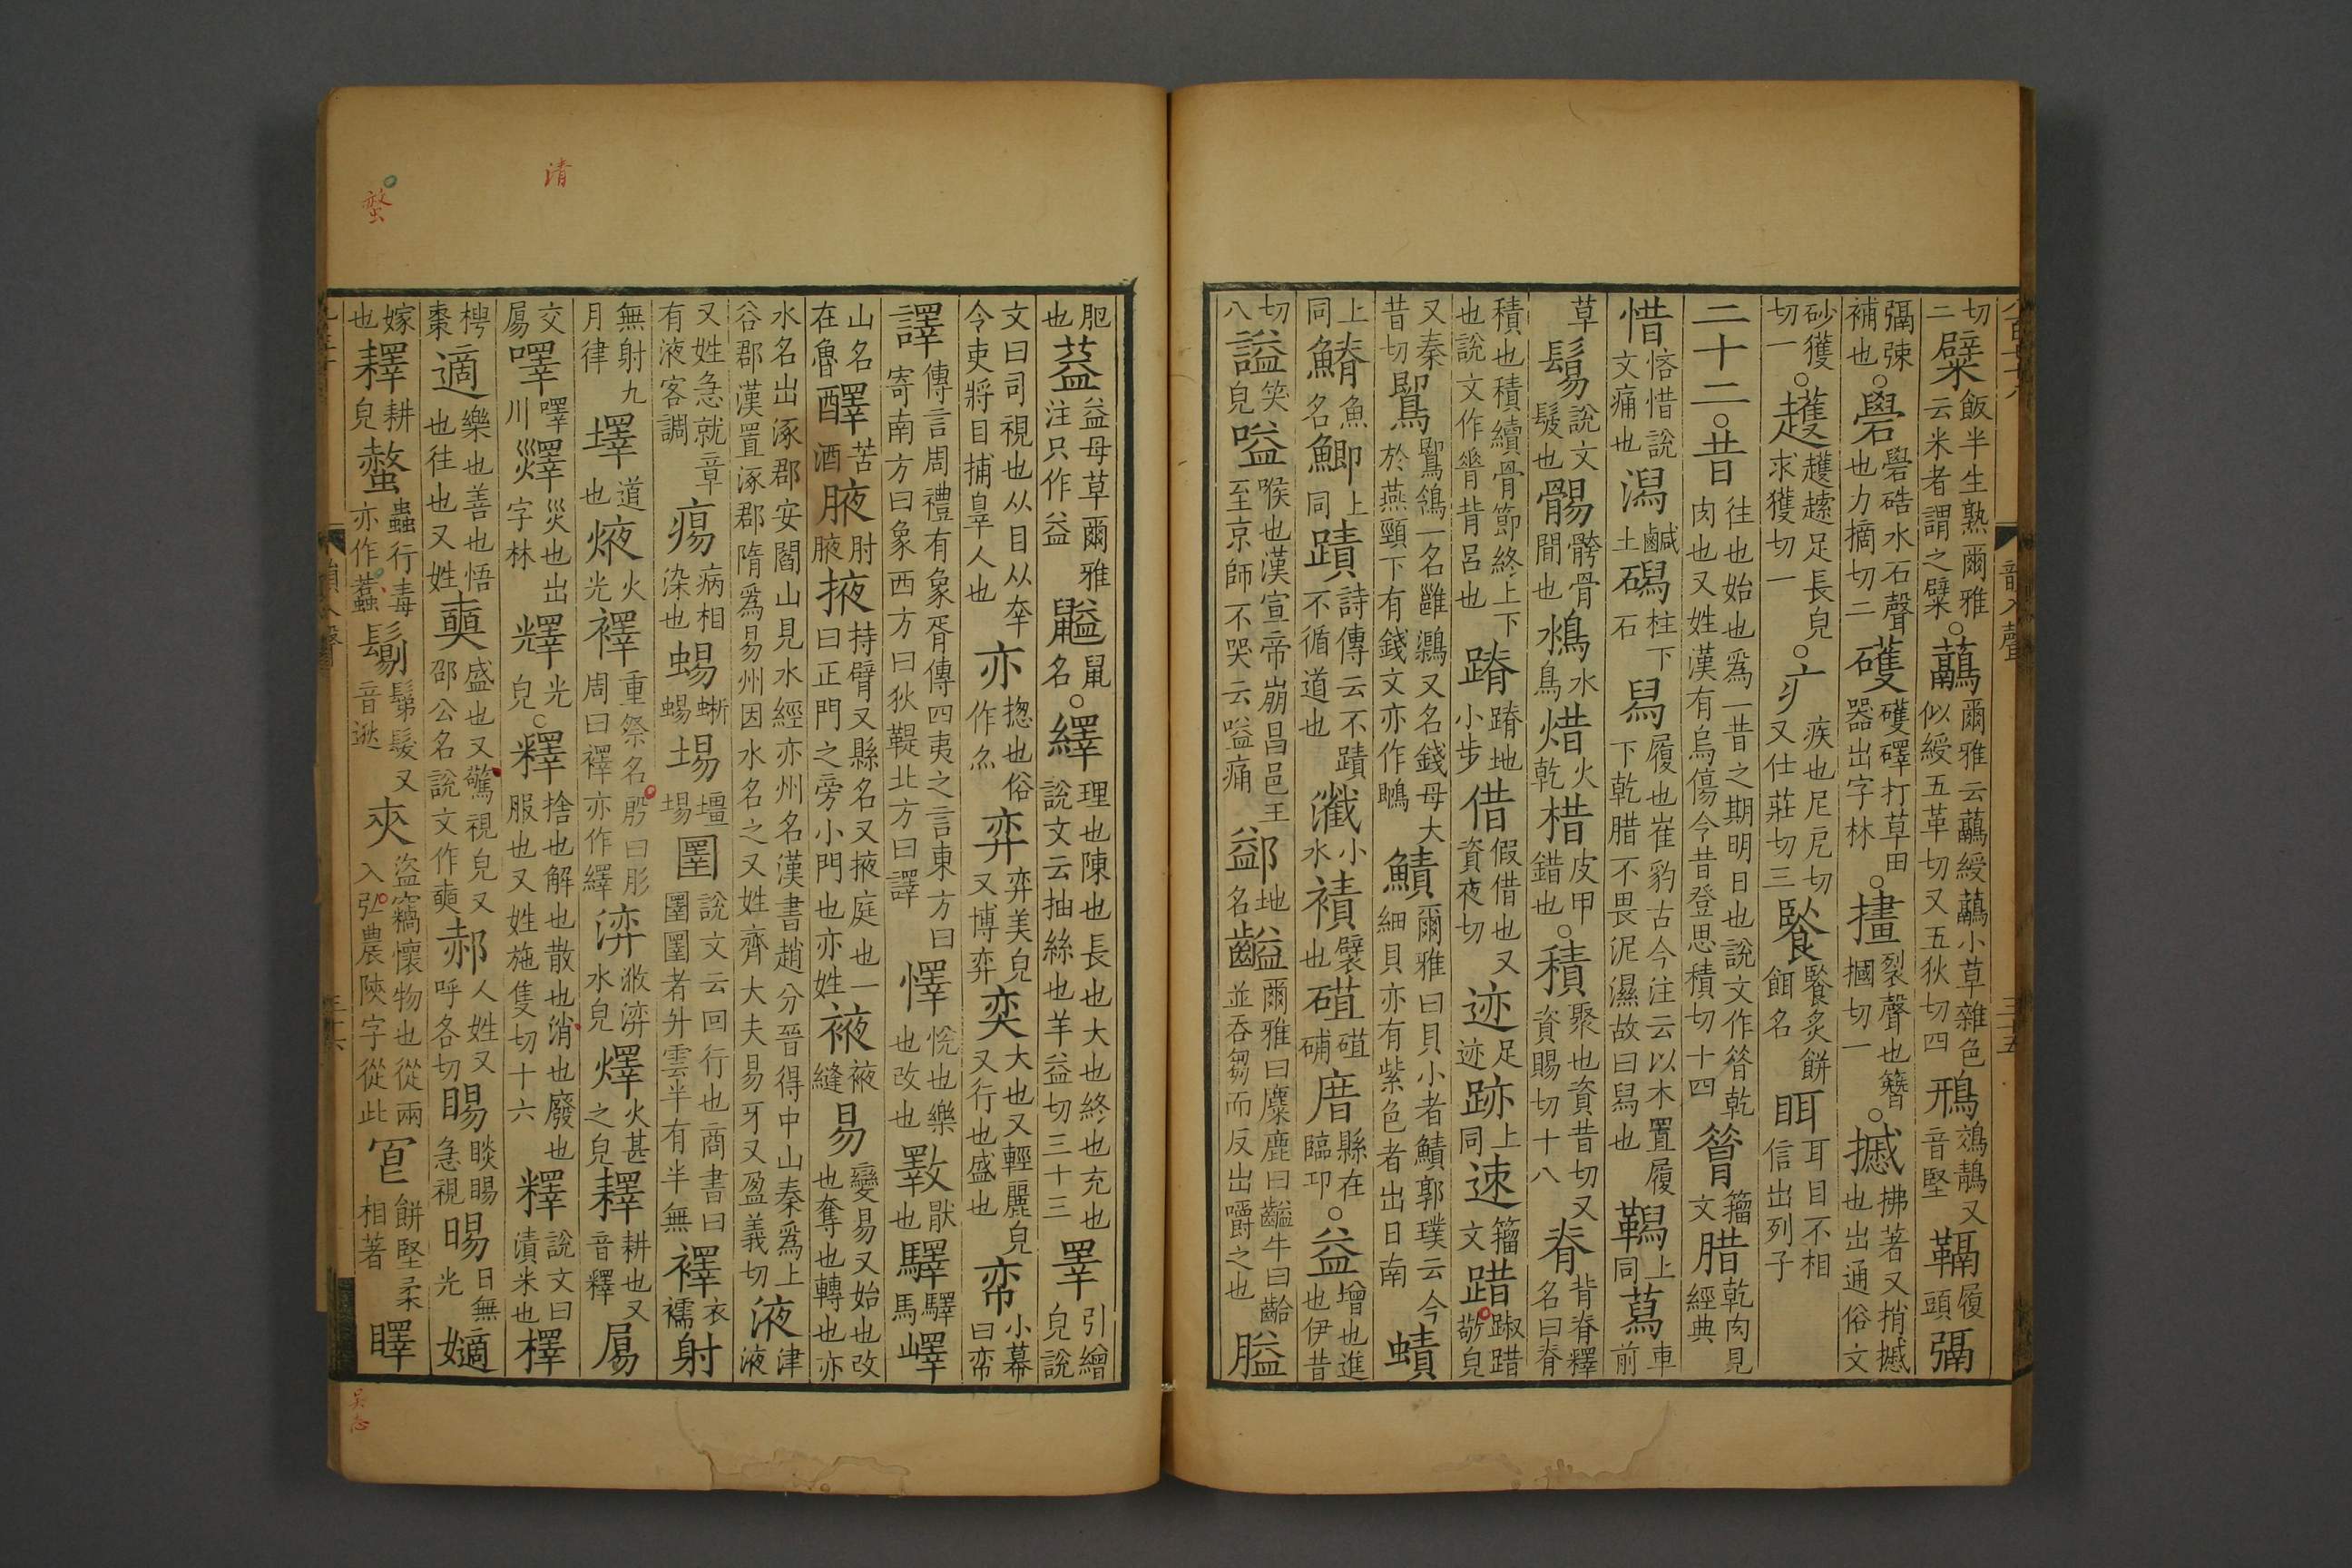 切二糪飯半生熟爾雅云米者謂之糪○虉爾雅云虉綬虉小草雜色似綬五革切又五狄切四鳽鵁鶄又音堅䩹履頭弻
弻𢐧補也○礐礐硞水石聲也力摘切二礭礭礋打草田器出字林○㩇裂聲也簪摑切一○摵拂著又捎摵也出通俗文
砂獲切一○𧾵𧾵𧽼足長皃求獲切一○疒疾也尼戹切又仕莊切三䭆䭆炙餅餌名眲耳目不相信出列子
二十二○昔往也始也爲一昔之期明日也說文作㫺乾肉也又姓漢有烏傷令昔登思積切十四𦠡籀文腊乾肉見經典
惜悋惜說文痛也潟鹹土磶柱下石舄履也崔豹古今注云以木置履下乾腊不畏泥濕故曰舄也䩳上同蕮車前
草鬄說文髲也䯜骻骨間也㵖水鳥焟火乾棤皮甲錯也○積聚也資昔切又資賜切十八脊背脊釋名曰脊
積也積續骨節終上下也說文作𦟝背呂也蹐蹐地小步借假借也又資夜切迹足迹跡上同速籀文踖踧踖敬皃
又秦昔切鶪鶪鴒一名雝鸂又名錢母大於燕頸下有錢文亦作鵙䲞爾雅曰貝小者䲞郭璞云今細貝亦有紫色者出日南蟦
上同䲙魚名鯽上同蹟詩傳云不蹟不循道也瀐小水襀襞也䃊䃊磗㾊縣在臨邛○益增也進也伊昔
切八謚笑皃嗌喉也漢宣帝崩昌邑王至京師不哭云嗌痛䣲地名齸爾雅曰麋鹿曰齸牛曰齝並吞芻而反出嚼之也膉
肥也䓊益母草爾雅注只作益鼶鼠名○繹理也陳也長也大也終也充也說文云抽絲也羊益切三十三睪引繒皃說
文曰司視也从目从㚔令吏將目捕辠人也亦㧾也俗作𠅃弈弈美皃又博弈奕大也又輕麗皃又行也盛也帟小幕曰帟
譯傳言周禮有象胥傳四夷之言東方曰寄南方曰象西方曰狄鞮北方曰譯懌悅也樂也改也斁猒也驛驛馬嶧
山名在魯醳苦酒腋肘腋掖持臂又縣名又掖庭也一曰正門之旁小門也亦姓䘸䘸縫易變易又始也改也奪也轉也亦
水名出涿郡安閻山見水經亦州名漢書趙分晉得中山秦爲上谷郡漢置涿郡隋爲易州因水名之又姓齊大夫易牙又盈義切液津液
又姓急就章有液容調㾭病相染也蜴蜥蜴埸壃埸圛說文云回行也商書曰圛圛者升雲半有半無襗衣襦射
無射九月律墿道也焲火光襗重祭名殷曰肜周曰襗亦作繹㳛㵝㳛水皃燡火甚之皃䎐耕也又音釋㑥
交㑥嚁嚁川㶠災也出字林𤌙光皃○釋捨也解也散也消也廢也服也又姓施隻切十六釋說文曰漬米也檡
梬棗適樂也善也悟也往也又姓奭盛也又驚視皃又邵公名說文作奭郝人姓又呼各切睗睒睗急視晹日無光嫡
嫁也䎐耕皃螫蟲行毒亦作䖨鬄鬀髮又音逖㚒盜竊懷物也從兩入弘農陝字從此𩚵餅堅柔相著𥋏
八百七十八
韻入聲
三十五
三十六
清
螫